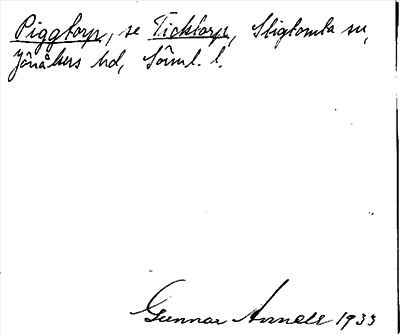 Piggtorp, se Ticktorp, Stigtomta sn,
Jönåkers hd, Sörml. l.
Gunnar Arnell 1933